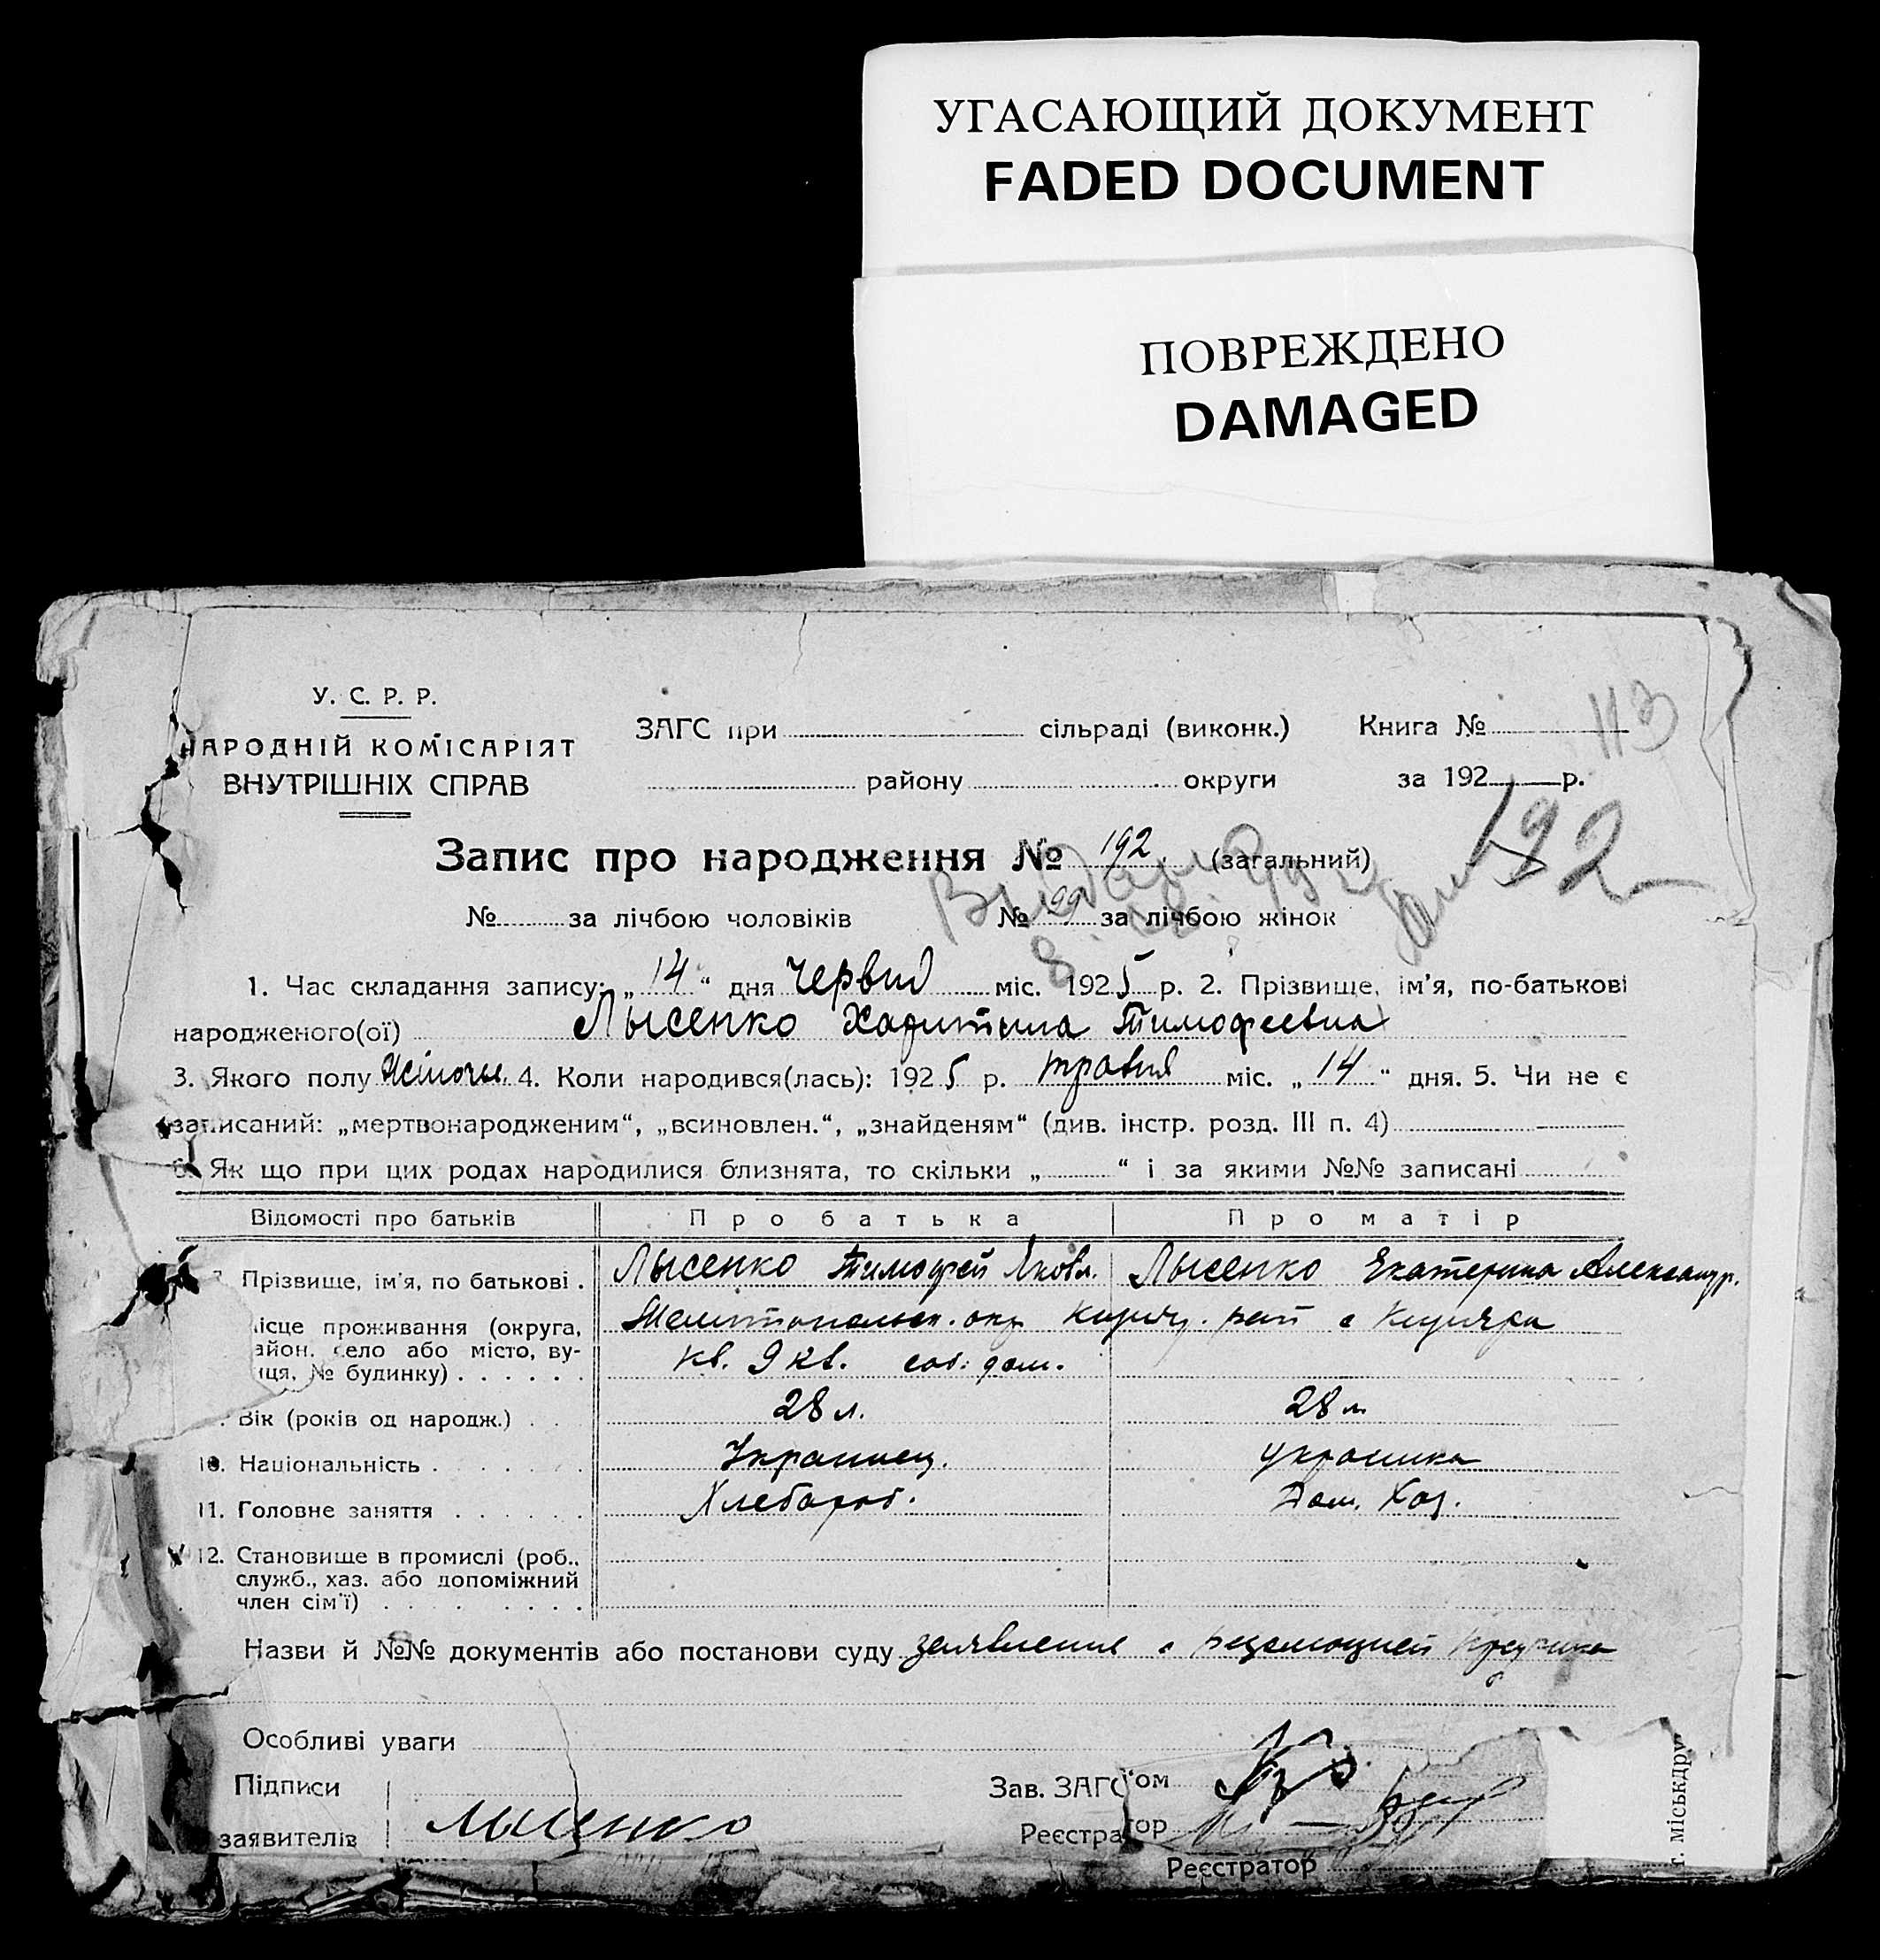 УГАСАЮЩИЙ ДОКУМЕНТ
FADED DOCUMENT
ПОВРЕЖДЕНО
DAMAGED
113
У. С. Р. Р.
НАРОДНІЙ КОМІСАРІЯТ
ВНУТРІШНІХ СПРАВ
ЗАГС при сільраді (виконк.) Книга №
району округи за 192 р.
192
Запис про народження № 192 (загальний)
№ за лічбою чоловіків № 99 за лічбою жінок
1. Час складання запису: „14“ дня Червня міс. 1925 р. 2. Прізвище, ім'я, по-батькові
народженого(ої) Лысенко Харитына Тимофеевна
3. Якого полу Жіночы 4. Коли народився(лась): 1925 р. травня міс. „14“ дня. 5. Чи не є
записаний: „мертвонародженим“, „всиновлен.“, „знайденям“ (див. інстр. розд. III п. 4)
6. Як що при цих родах народилися близнята, то скільки „ “ і за якими №№ записані
Відомості про батьків Про батька Про матір
Прізвище, ім'я, по батькові . Лысенко Тимофей Яковл. Лысенко Екатерина Александр.
місце проживання (округа, Мелитопольск. окр
айон. село або місто, ву-
ця, № будинку) кв. 9 кв. соб. дом.
Вік (років од народж.) 28 л. 28 л
10. Національність Украинец. украинка
11. Головне заняття Хлебороб. Дом. Хоз.
12. Становище в промислі (роб.,
служб., хаз. або допоміжний
член сім'ї)
Назви й №№ документів або постанови суду заявление с резолюцией
Особливі уваги
Підписи Зав. ЗАГС'ом
заявителів Лысенко Реєстратор
Реєстратор
г. міськдру